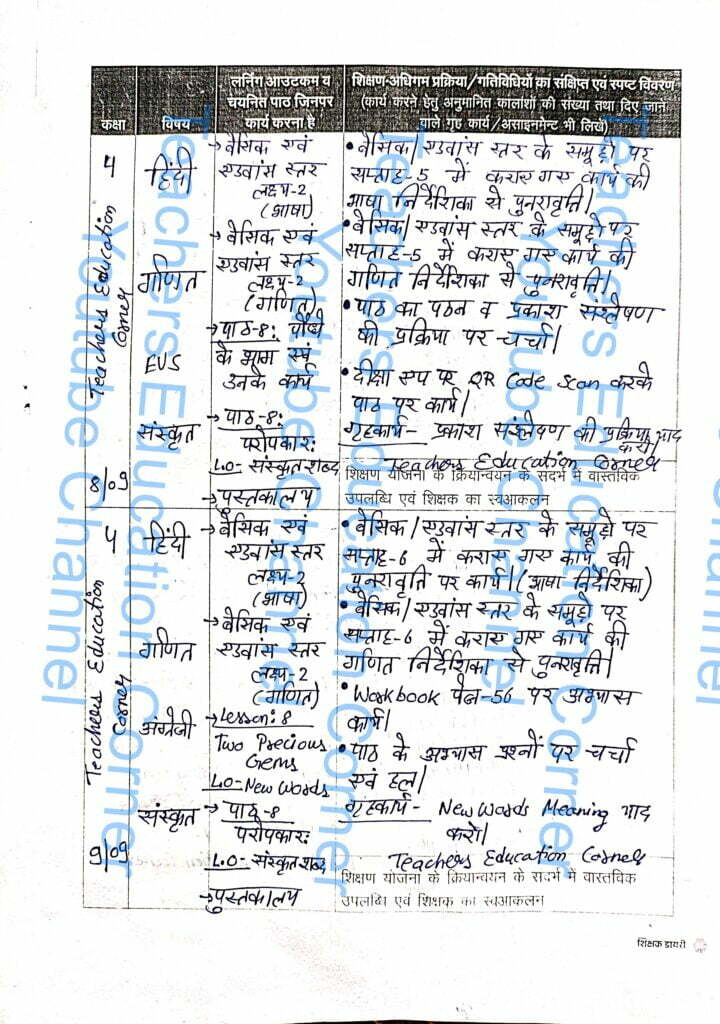 कक्षा
विषय
लर्निंग आउटकम व
चयनित पाठ जिनपर
कार्य करना है
शिक्षण-अधिगम प्रक्रिया/गतिविधियों का संक्षिप्त एवं स्पष्ट विवरण
(कार्य करने हेतु अनुमानित कालांशों की संख्या तथा दिए जाने
वाले गृह कार्य/असाइनमेंट भी लिखें)
4
हिंदी
→ बेसिक एवं
एडवांस स्तर
लक्ष्य-2
(भाषा)
• बेसिक/एडवांस स्तर के समूहों पर
सप्ताह-5 में कराए गए कार्य की
भाषा निर्देशिका से पुनरावृत्ति।
गणित
→ बेसिक एवं
एडवांस स्तर
लक्ष्य-2
(गणित)
• बेसिक/एडवांस स्तर के समूहों पर
सप्ताह-5 में कराए गए कार्य की
गणित निर्देशिका से पुनरावृत्ति।
EVS
→ पाठ-8: पौधे
के भाग एवं
उनके कार्य
• पाठ का पठन व प्रकाश संश्लेषण
की प्रक्रिया पर चर्चा।
• दीक्षा एप पर QR Code Scan करके
पाठ पर कार्य।
संस्कृत
→ पाठ-8:
परोपकार:
L.O- संस्कृत शब्द
→ पुस्तकालय
गृहकार्य- प्रकाश संश्लेषण की प्रक्रिया याद
करो।
Teachers Education Corner
शिक्षण योजना के क्रियान्वयन के संदर्भ में वास्तविक
उपलब्धि एवं शिक्षक का स्वआकलन
8/09
Teachers Education
Corner
4
हिंदी
→ बेसिक एवं
एडवांस स्तर
लक्ष्य-2
(भाषा)
• बेसिक/एडवांस स्तर के समूहों पर
सप्ताह-6 में कराए गए कार्य की
पुनरावृत्ति पर कार्य। (भाषा निर्देशिका)
गणित
→ बेसिक एवं
एडवांस स्तर
लक्ष्य-2
(गणित)
• बेसिक/एडवांस स्तर के समूहों पर
सप्ताह-6 में कराए गए कार्य की
गणित निर्देशिका से पुनरावृत्ति।
अंग्रेजी
→ Lesson: 8
Two Precious
Gems
L.O- New Words
• Workbook पेज-56 पर अभ्यास
कार्य।
• पाठ के अभ्यास प्रश्नों पर चर्चा
एवं हल।
संस्कृत
→ पाठ-8
परोपकार:
L.O- संस्कृत शब्द
→ पुस्तकालय
गृहकार्य- New Words Meaning याद
करो।
Teachers Education Corner
शिक्षण योजना के क्रियान्वयन के संदर्भ में वास्तविक
उपलब्धि एवं शिक्षक का स्वआकलन
9/09
Teachers Education
Corner
शिक्षक डायरी
Teachers Education Corner
Youtube Channel
Teachers Education Corner
Youtube Channel